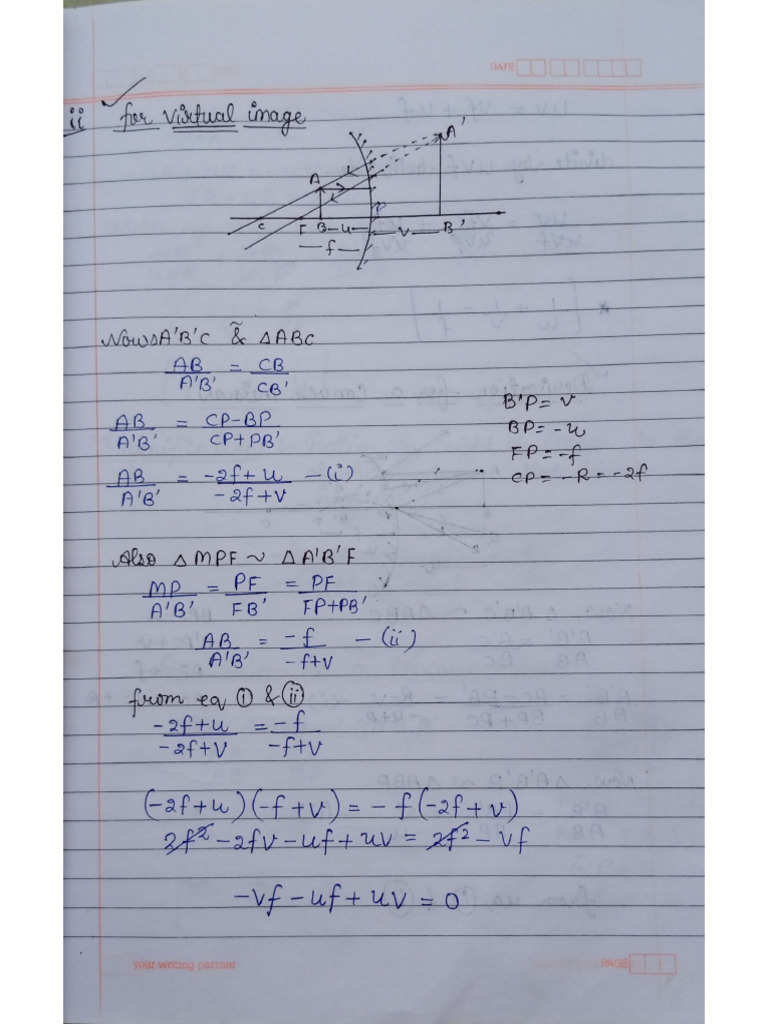 DATE
ii ✓ for virtual image
A'
A
P
C F B—u— —v— B'
—f—
Now △A'B'C ~& △ABC
AB/A'B' = CB/CB'
B'P = v
AB/A'B' = CP-BP/CP+PB'
BP = -u
FP = -f
AB/A'B' = -2f+u/-2f+v —(i)
CP = -R = -2f
Also △MPF ~ △A'B'F
MP/A'B' = PF/FB' = PF/FP+PB'
AB/A'B' = -f/-f+v —(ii)
from eq ① & ⑪
-2f+u/-2f+v = -f/-f+v
(-2f+u)(-f+v) = -f(-2f+v)
2f² -2fv -uf +uv = 2f² - vf
-vf -uf +uv = 0
your writing partner
PAGE